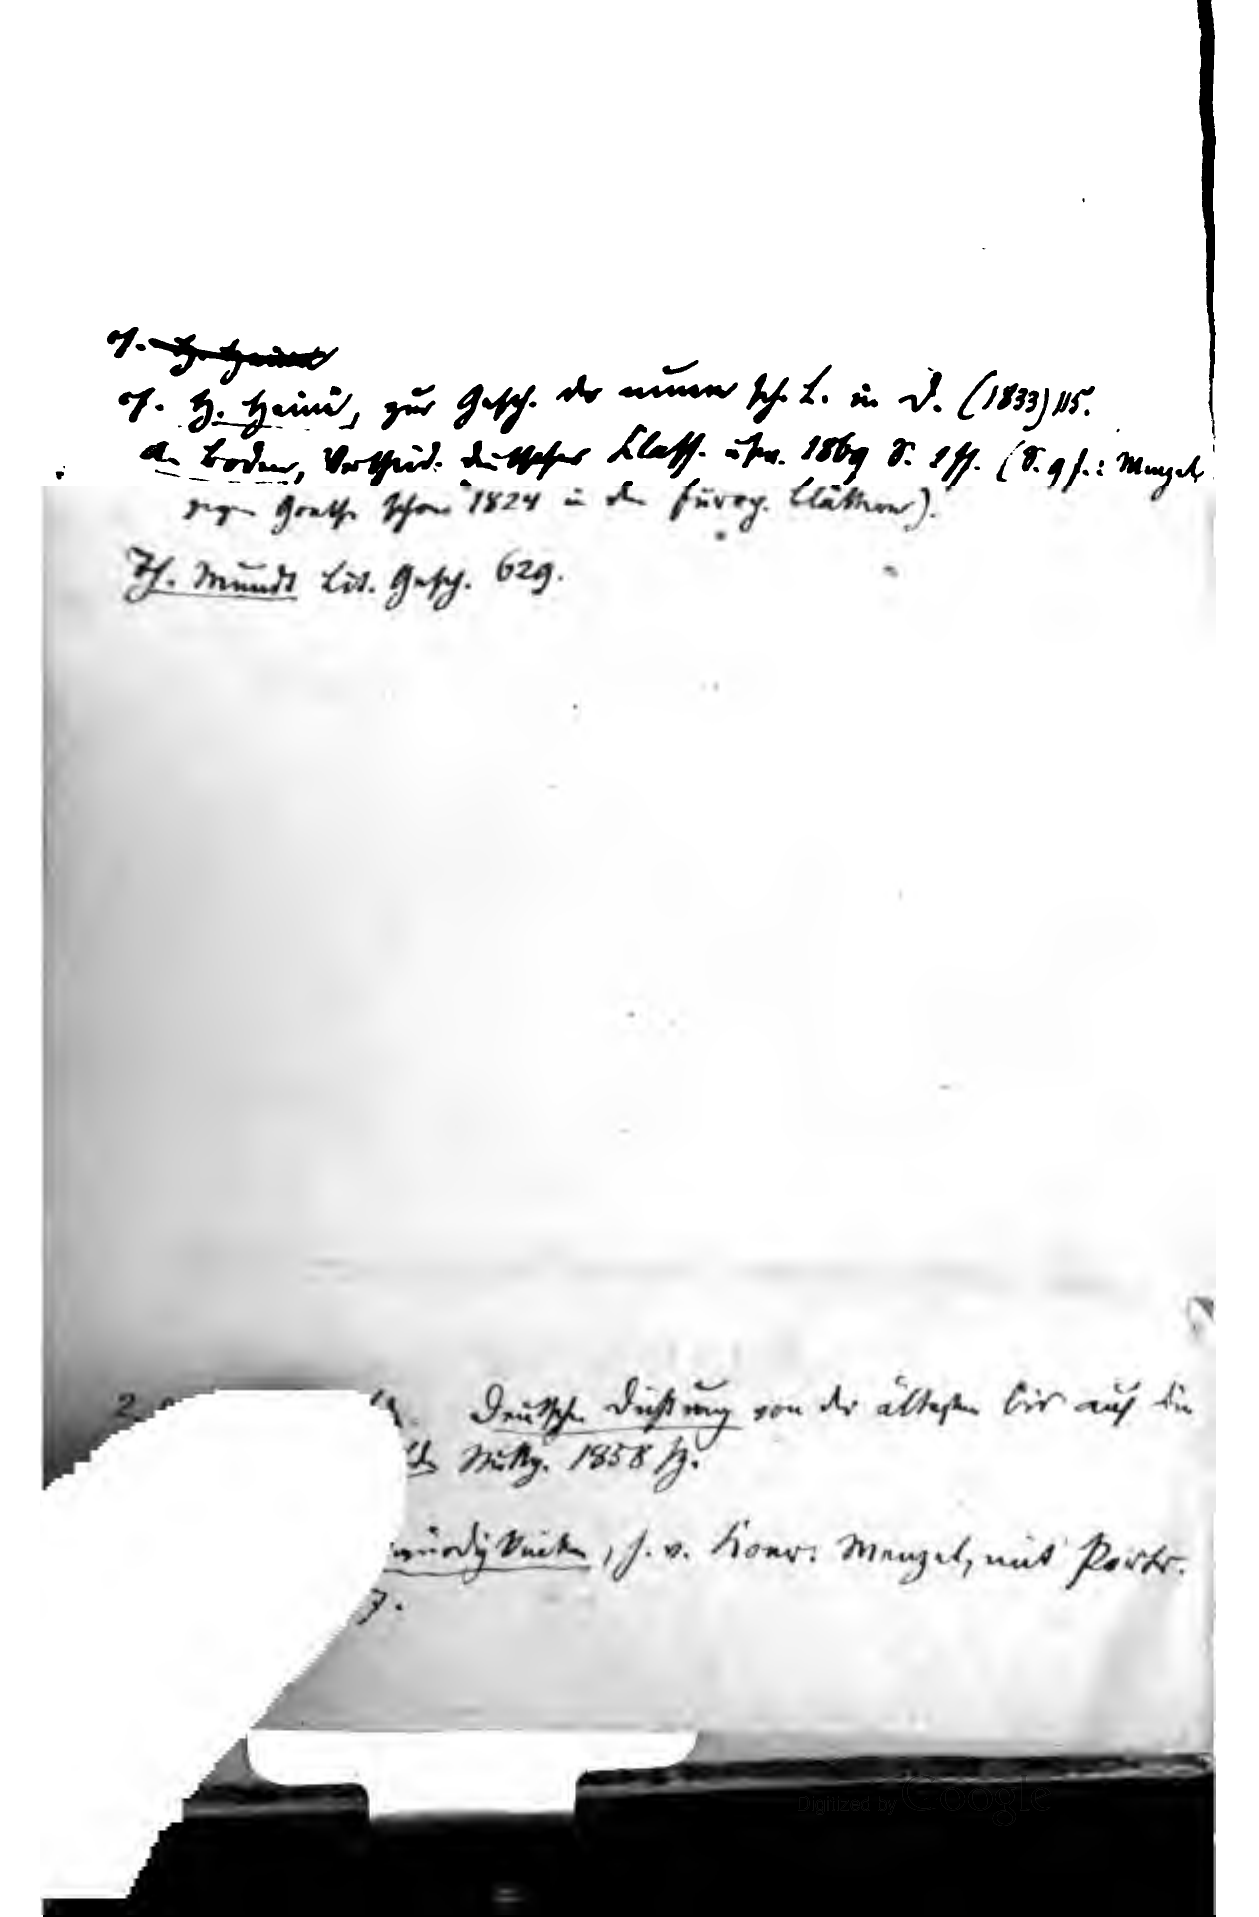 cf. H. Heine
cf. H. Heine, zur Gesch. der neuern sch. L. in D. (1833) 115.
A. Boden, Vertheid. deutscher Klass. usw. 1869 S. 1 ff. (S. 9 f.: Menzel
gegen Goethe schon 1824 in den Europ. Blättern).
Th. Mundt Lit. Gesch. 629.
2.
Deutsche Dichtung von der ältesten bis auf die
Stuttg. 1858 fg.
würdigkeiten, h. v. Konr. Menzel, mit Portr.
7.
Digitized by Google